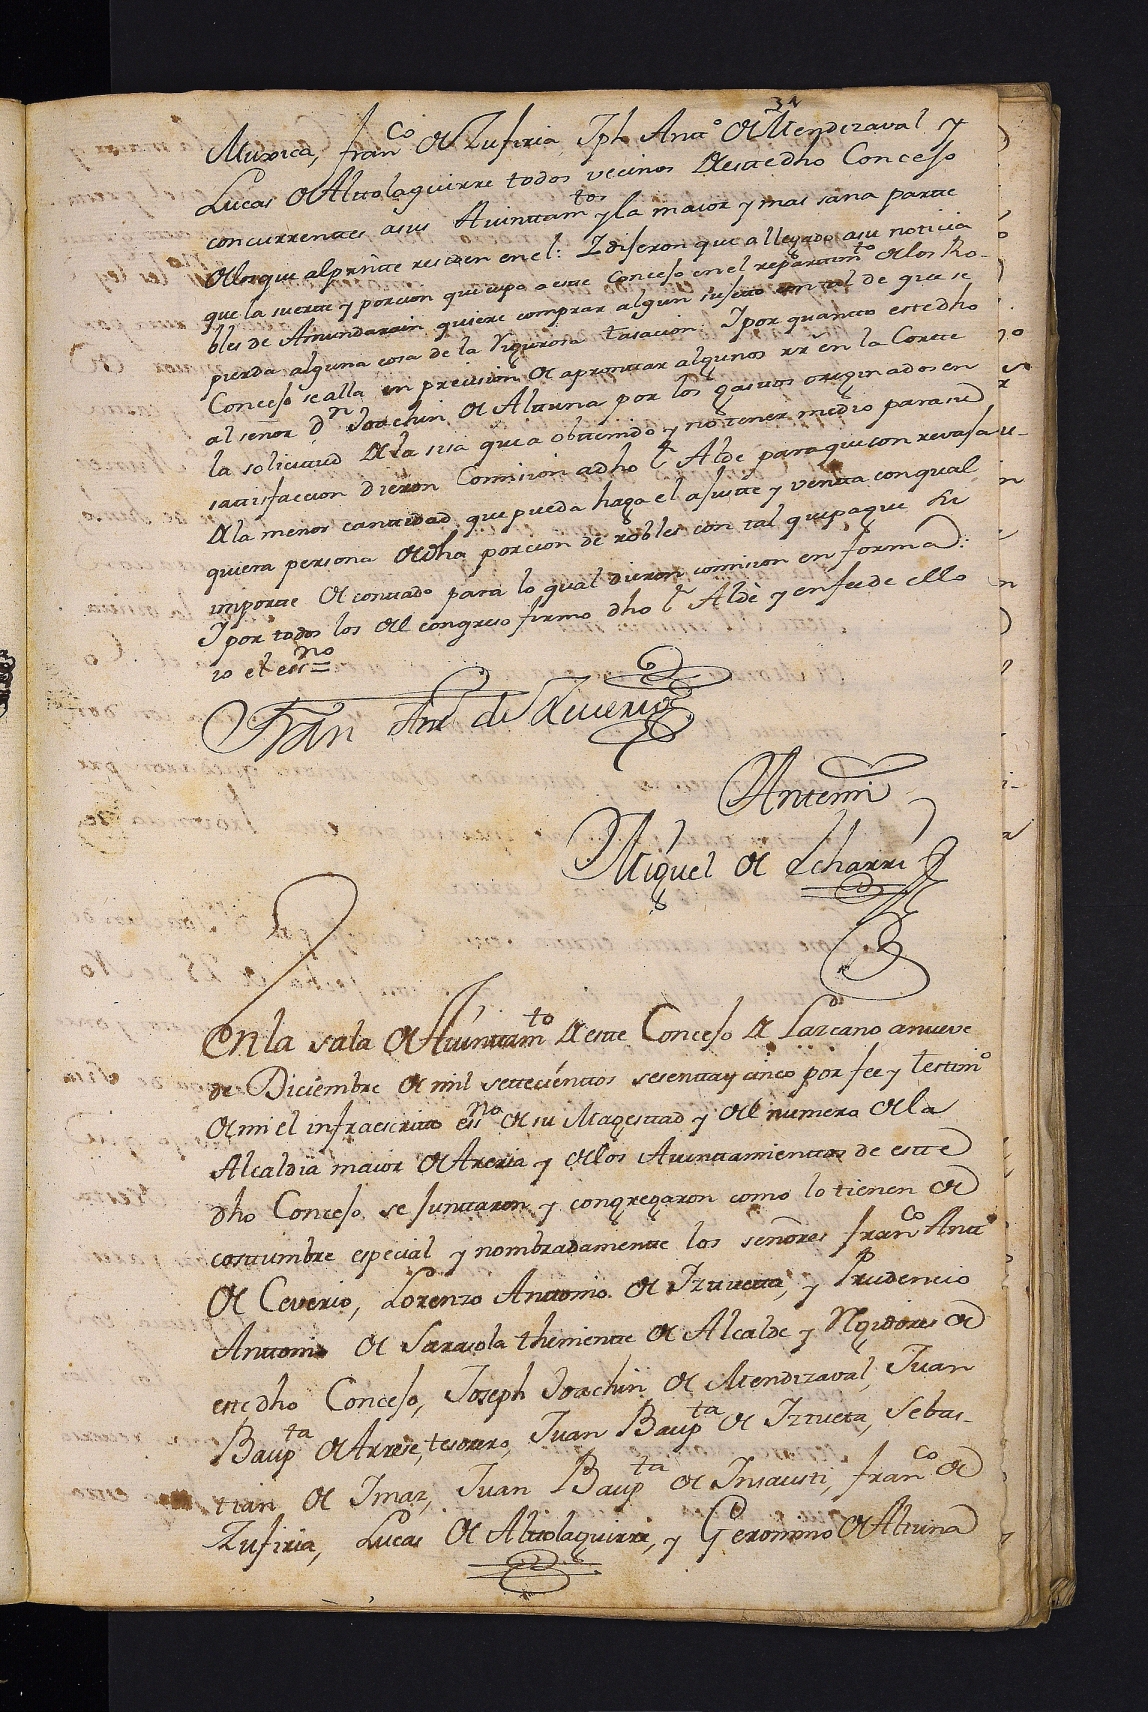 34
Muxica, fran.co de Zufiria, Jph Ant.o de Mendizaval y
Lucas de Altolaguirre todos vecinos de este dho Consejo
concurrentes a sus Aiuntam.tos y la maior y mas sana parte
de los que al presnte residen en el: I dijeron que a llegado a su noticia
que la suerte y porcion que cupo a este Consejo en el repartim.to de los Ro-
bles de Amundarain quiere comprar algun sujeto con tal de que se
pierda alguna cosa de la rigurosa tasacion. I por quanto este dho
Consejo se alla en precision de aprontar algunos rr.s en la Corte
al señor D.n Joachin de Altuna por los gastos originados en
la solicitud de la sisa que a obtenido y no tener medio para su
satisfaccion dieron Comision a dho s.r Alde para que con revaja
de la menor cantidad que pueda haga el ajuste y venta con qual
quiera persona de dha porcion de robles con tal que pague su
importe de contado para lo qual dieron comision en forma:
I por todos los del congreso firmo dho s.r Aldè y en fee de ello
io el ess.no =
Fran Ant de Zeverio
Antemi
Miguel de Echarri
En la sala de Aiuntam.to de este Consejo de Lazcano a nueve
de Diciembre de mil settecienttos sesenta y cinco por fee y testim.o
de mi el infraescritto ess.no de su Magestad y del numero de la
Alcaldia maior de Areria y de los Aiuntamientos de este
dho Consejo se juntaron y congregaron como lo tienen de
costumbre especial y nombradamente los señores fran.co Ant.o
de Ceverio, Lorenzo Antonio de Iztueta, y Prudencio
Antonio de Sarasola theniente de Alcalde y Regidores de
este dho Consejo, Joseph Joachin de Mendizaval, Juan
Baup.ta de Arrese, tesorero, Juan Baup.ta de Iztueta, Sebas-
tian de Imaz, Juan Baup.ta de Insausti, fran.co de
Zufiria, Lucas de Altolaguirre, y Geronimo de Altuna